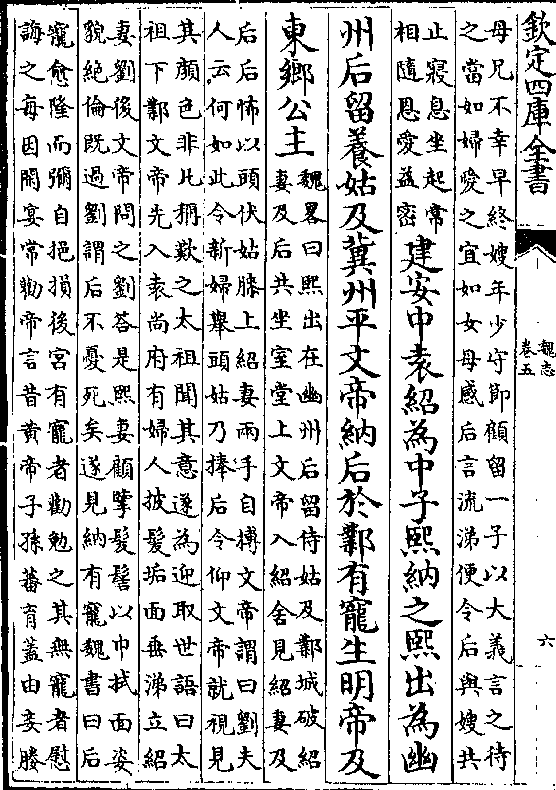 欽定四庫全書
魏志
卷五
六
母兄不幸早終嫂年少守節顧留一子以大義言之待
之當如婦愛之宜如女母感后言流涕便令后與嫂共
止寢息坐起常
相隨恩愛益密
建安中袁紹為中子熙納之熙出為幽
州后留養姑及冀州平文帝納后於鄴有寵生明帝及
東鄉公主
魏畧曰熙出在幽州后留侍姑及鄴城破紹
妻及后共坐室堂上文帝入紹舍見紹妻及
后后怖以頭伏姑膝上紹妻兩手自搏文帝謂曰劉夫
人云何如此令新婦舉頭姑乃捧后令仰文帝就視見
其顏色非凡稱歎之太祖聞其意遂為迎取世語曰太
祖下鄴文帝先入袁尚府有婦人披髮垢面垂涕立紹
妻劉後文帝問之劉答是熙妻顧擥髮髻以巾拭面姿
貌絕倫既過劉謂后不憂死矣遂見納有寵魏書曰后
寵愈隆而彌自挹損後宮有寵者勸勉之其無寵者慰
誨之每因閒宴常勸帝言昔黃帝子孫蕃育蓋由妾媵